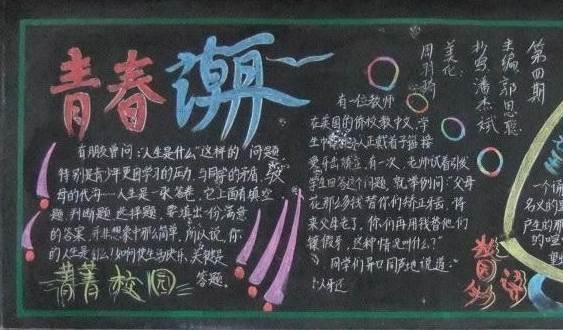 青春潮
第四期
主编 郭思聪
抄写 潘杰斌
美化:
有朋友曾问:“人生是什么”这样的问题
特别是青少年更因学习的压力,与同学的矛盾,
母的代沟……人生是一张答卷,它上面有填空
题,判断题,选择题,要填出一份满意
的答案,并非想象中那么简单,所以说,你
的人生是什么!如何使生当快乐,关键是
答题。
菁菁校园
有一位教师
在英国的侨校教中文,学
生中 人正戴着牙 接
受牙齿矫正,有一次,老师试着引发
学生回答这个问题,就举例问:“父母
花那么多钱替你们矫正牙齿,将
来父母老了,你们再用钱替他们
镶假牙,这种情况叫什么?”
同学们异口同声地说道:“
以牙还
校园
妙语
一个
名义的
产生的
的